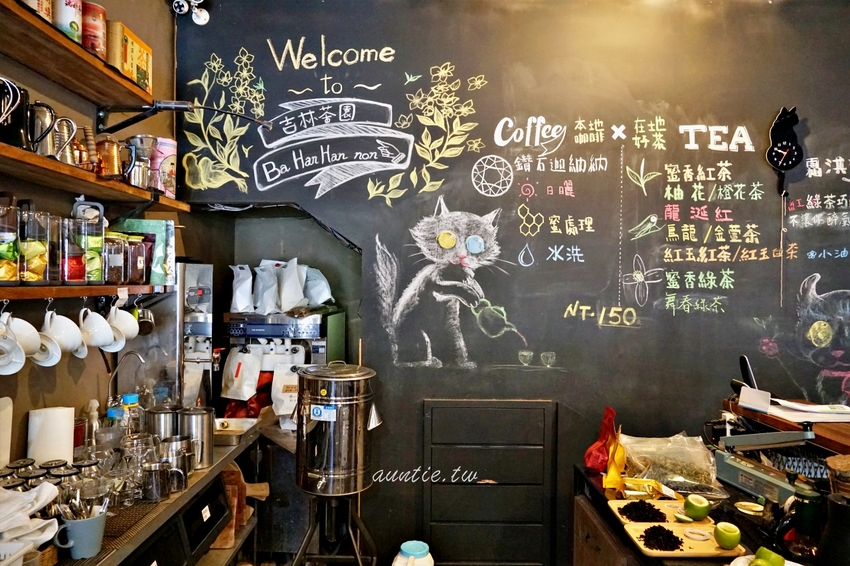 Welcome
to
吉林茶園
Ba Han Han non
Coffee 本地咖啡 × 在地好茶 TEA
鑽石迦納納
日曬
蜜處理
水洗
蜜香紅茶
柚花/橙花茶
龍涎紅
烏龍/金萱茶
紅玉紅茶/紅玉田茶
蜜香綠茶
舞春綠茶
NT.150
霜淇
紅綠茶巧
不讓你醉氣
小油
auntie.tw